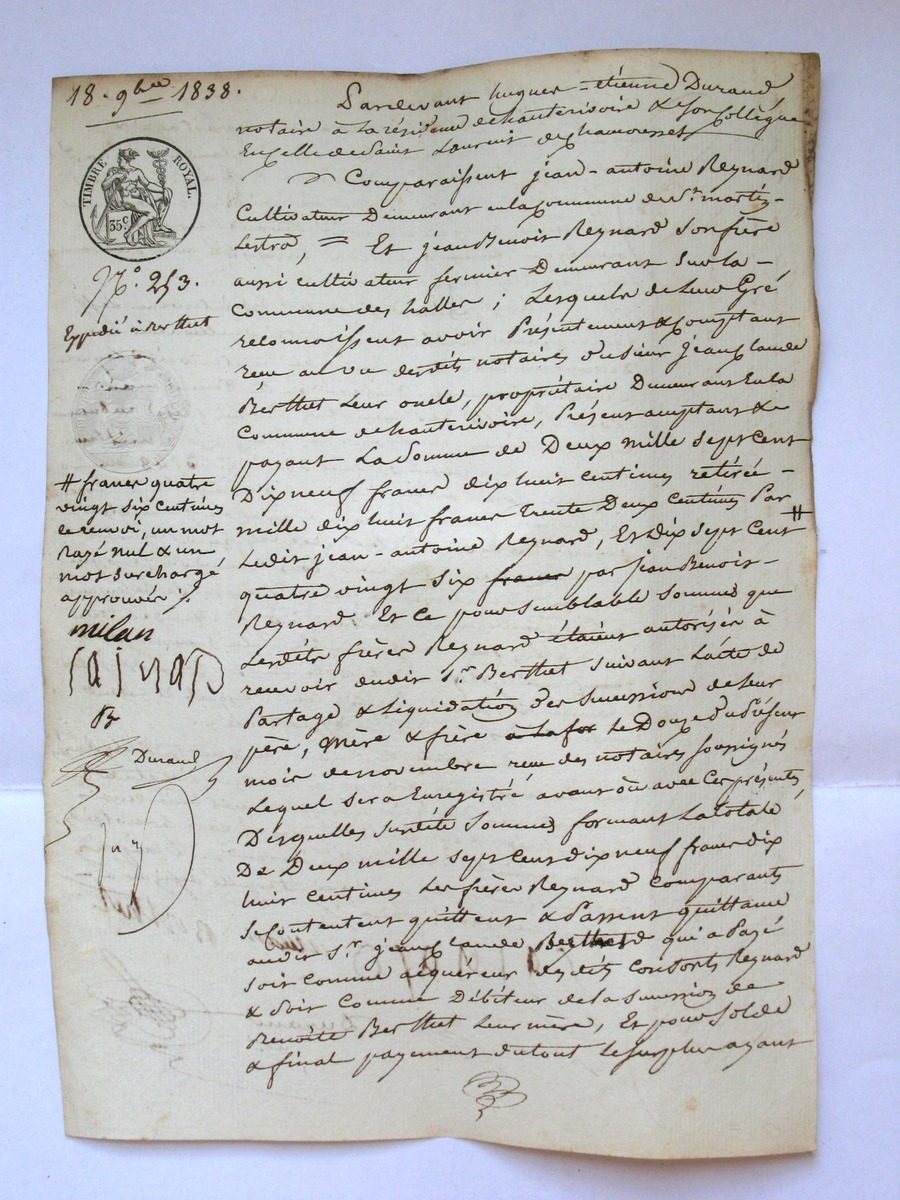 18. 9bre 1838.
TIMBRE ROYAL.
35 c.
N.° 253.
Expédié à Berthet
# francs quatre
vingt six centimes
le renvoi, un mot
rayé nul & un
mot surchargé
approuvés ;/.
milan
Durand
Pardevant hugues - étienne Durand
notaire à la résidence de hauterivoire & son Collègue
En celle de Saint Laurent de Chamousset
Comparaissent jean - antoine Reynard
Cultivateur Demeurant en la Commune de St. martin-
Lestra, = Et jean Benoit Reynard son frère
aussi cultivateur fermier Demeurant sur la -
Commune des halles ; Lesquels de Leur Gré
reconnoissent avoir Présentement & Comptant
reçu au vu desdits notaires du sieur jean Claude
Berthet Leur oncle, propriétaire Demeurant En la
Commune de hauterivoire, Présent acceptant &
payant La Somme de Deux mille sept Cent
Dix neuf francs dix huit centimes retirée -
mille dix huit francs Trente Deux centimes Par #
Ledit jean - antoine Reynard, Et Dix sept Cent
quatre vingt six francs par jean Benoit -
Reynard Et Ce pour semblable sommes que
Lesdits frères Reynard étaient autorisés à
recevoir dudit Sr. Berthet suivant L'acte de
Partage & Liquidation des successions de Leur
père, mère & frère le Douze du Présent
mois de novembre reçu des notaires soussignés
Lequel sera Enregistré avant ou avec Ces présentes
Desquelles susdites sommes formant La totale
De Deux mille sept Cent dix neuf francs dix
huit centimes Les frères Reynard Comparants
se Contentent quittent & Passent quittance
audit Sr. jean Claude Berthet qui a Payé
soit comme acquéreur desdits Consorts Reynard
& soit Comme Débiteur de la succession de
Benoite Berthet Leur mère, Et pour solde
& final payement du tout le surplus ayant